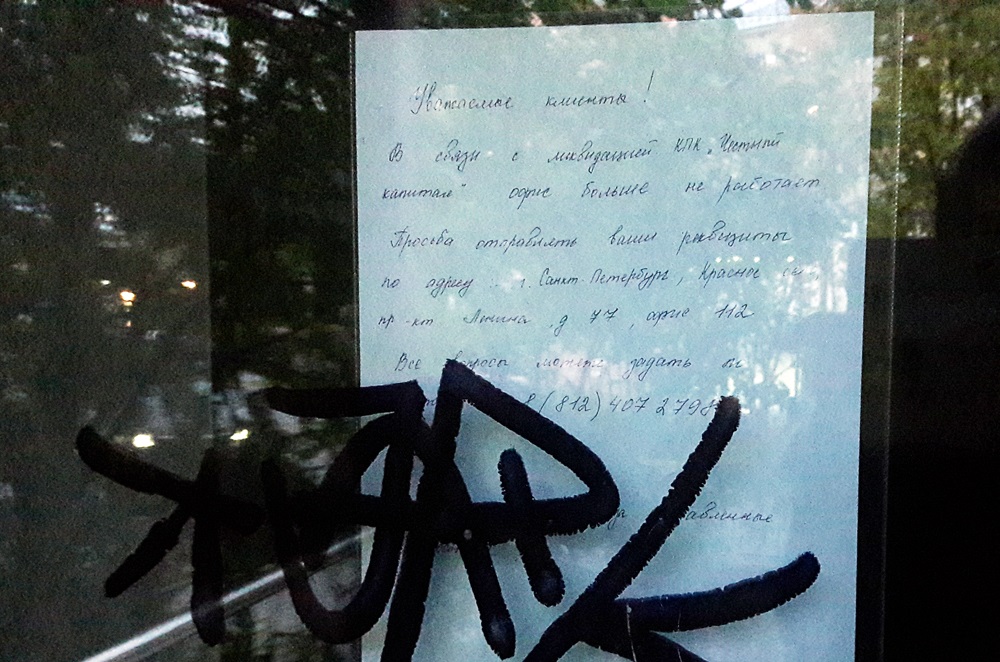 Уважаемые клиенты!
В связи с ликвидацией КПК „Честный
капитал" офис больше не работает
Просьба отправлять ваши реквизиты
по адресу: г. Санкт-Петербург, Красное
пр-кт Ленина д 77, офис 112
Все вопросы можете задать по
8(812) 407 2798